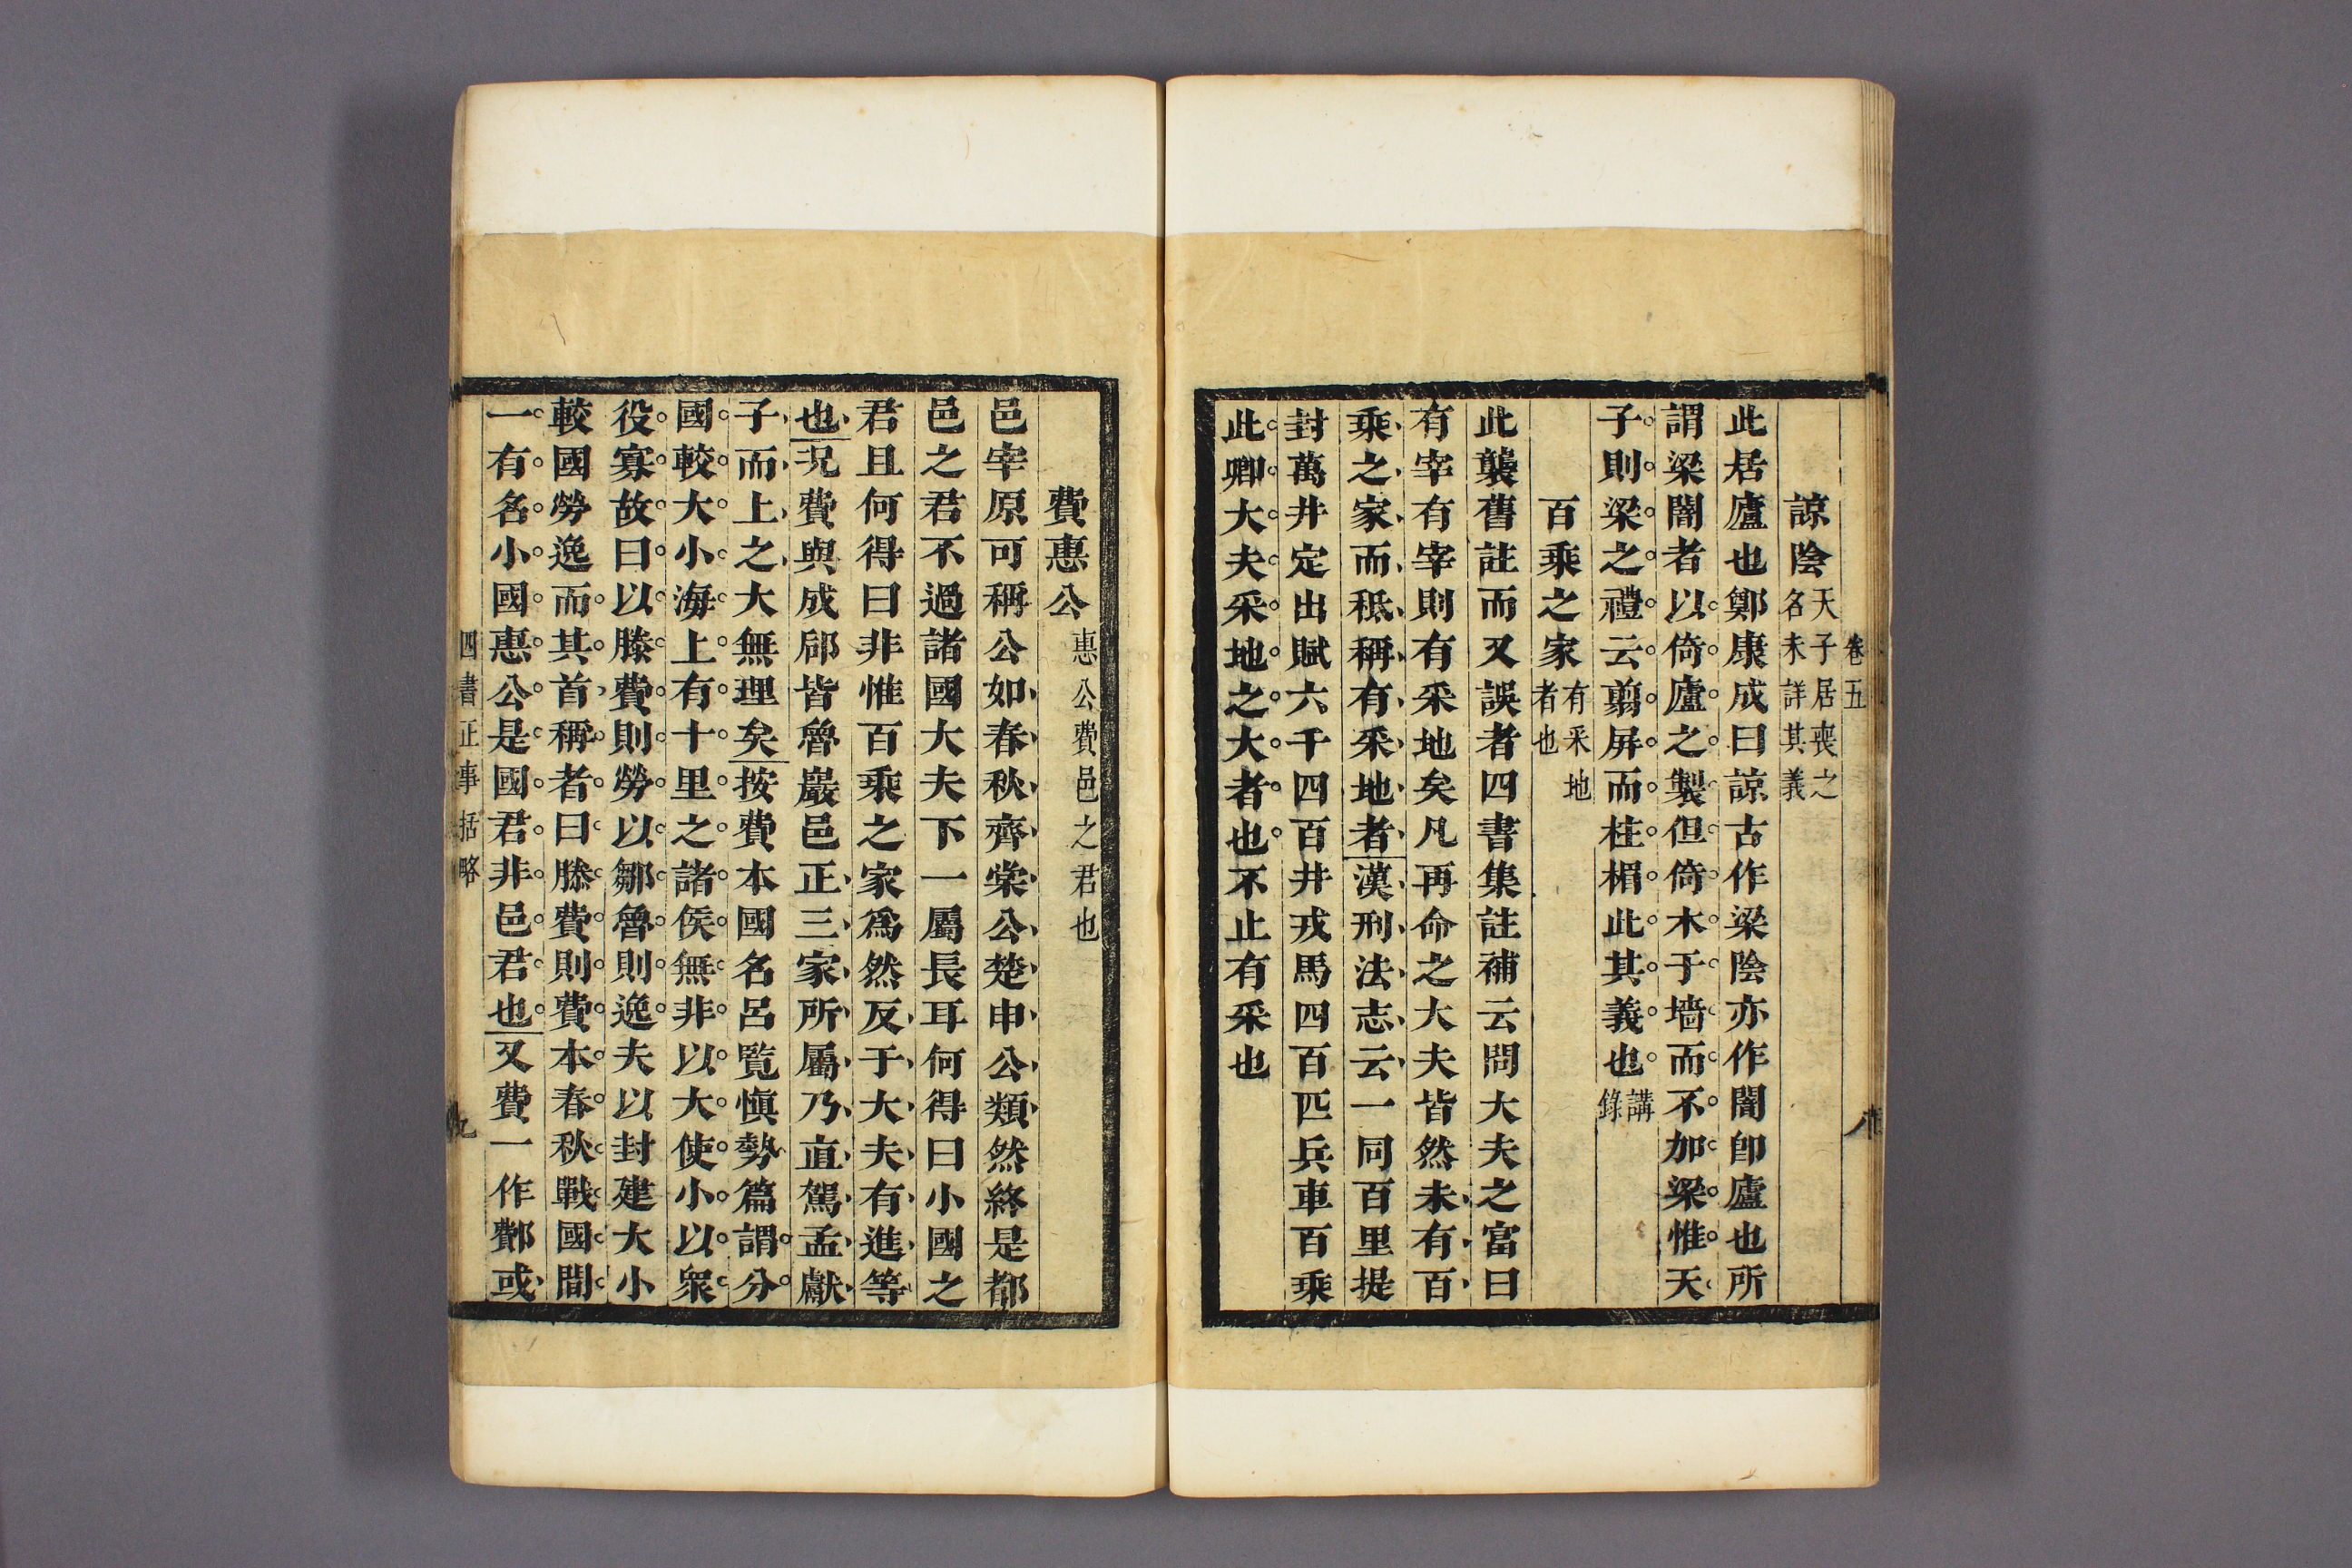 卷五
八
諒陰天子居喪之名未詳其義
此居廬也鄭康成曰諒古作梁陰亦作闇卽廬也所
謂梁闇者以倚廬之製但倚木于墻而不加梁惟天
子則梁之禮云翦屏而柱楣此其義也講錄
百乘之家有采地者也
此襲舊註而又誤者四書集註補云問大夫之富曰
有宰有宰則有采地矣凡再命之大夫皆然未有百
乘之家而秪稱有采地者漢刑法志云一同百里提
封萬井定出賦六千四百井戎馬四百匹兵車百乘
此卿大夫采地之大者也不止有采也
費惠公惠公費邑之君也
邑宰原可稱公如春秋齊棠公楚申公類然終是都
邑之君不過諸國大夫下一屬長耳何得曰小國之
君且何得曰非惟百乘之家爲然反于大夫有進等
也况費與成郈皆魯巖邑正三家所屬乃直駕孟獻
子而上之大無理矣按費本國名呂覧愼勢篇謂分
國較大小海上有十里之諸侯無非以大使小以衆
役寡故曰以滕費則勞以鄒魯則逸夫以封建大小
較國勞逸而其首稱者曰滕費則費本春秋戰國間
一有名小國惠公是國君非邑君也又費一作鄪或
四書正事括略
九